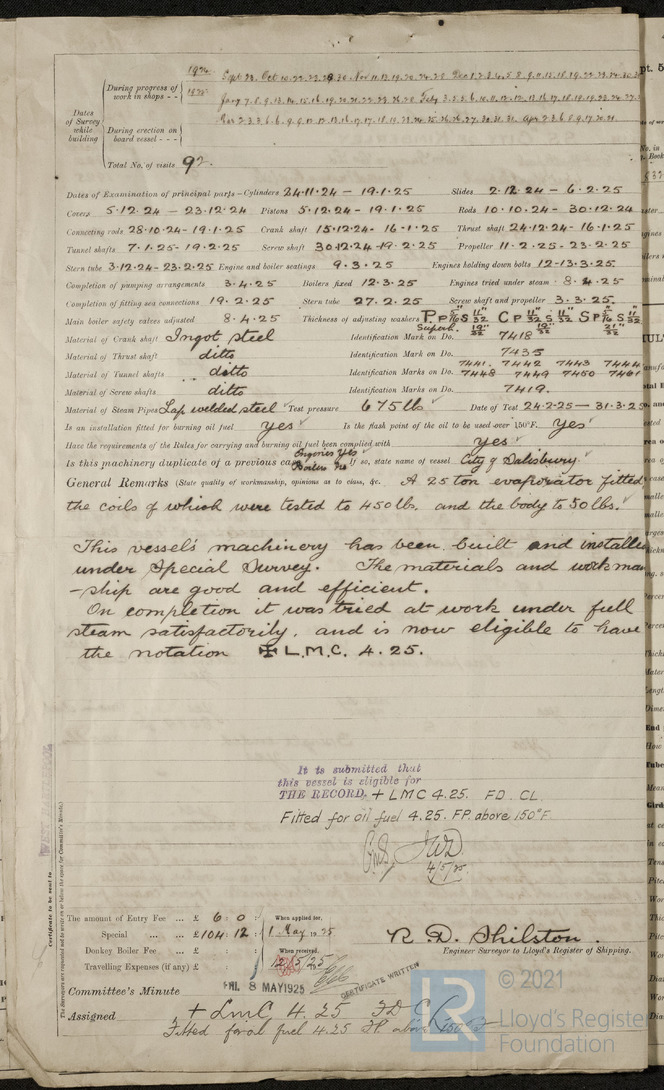 1924
Dates of Survey while building
During progress of work in shops - -
Sept 28. Oct 10. 22. 23. 29. 30. Nov 11. 12. 19. 20. 24. 28 Dec 1. 2. 3. 4. 5. 8. 9. 11. 12. 15. 18. 19. 22. 23. 24. 30.
1925
Jany 7. 8. 9. 13. 14. 15. 16. 19. 20. 21. 22. 23. 26. 28 Feby 3. 5. 5. 6.
During erection on board vessel - - -
Mar 2. 3. 3. 6. 6. 9.
Total No. of visits 92.
Dates of Examination of principal parts—Cylinders 24.11.24 — 19.1.25 Slides 2.12.24 — 6.2.25
Covers 5.12.24 — 23.12.24 Pistons 5.12.24 — 19.1.25 Rods 10.10.24 — 30.12.24
Connecting rods 28.10.24 - 19.1.25 Crank shaft 15.12.24 - 16.1.25 Thrust shaft 24.12.24 - 16.1.25
Tunnel shafts 7.1.25 - 19.2.25 Screw shaft 30.12.24 - 19.2.25 Propeller 11.2.25 - 23.2.25
Stern tube 3.12.24 - 23.2.25 Engine and boiler seatings 9.3.25 Engines holding down bolts 12-13.3.25
Completion of pumping arrangements 3.4.25 Boilers fixed 12.3.25 Engines tried under steam 8.4.25
Completion of fitting sea connections 19.2.25 Stern tube 27.2.25 Screw shaft and propeller 3.3.25
Main boiler safety valves adjusted 8.4.25 Thickness of adjusting washers P. P 5/16 S 11/32 C P 11/32 S 11/32 S P 5/16 S 11/32
Superh. 19/32 19/32 21/32
Material of Crank shaft Ingot steel Identification Mark on Do. 7418
Material of Thrust shaft ditto Identification Mark on Do. 7435
7441. 7442 7443 7444
Material of Tunnel shafts ditto Identification Marks on Do. 7448 7449 7450 7461
Material of Screw shafts ditto Identification Marks on Do. 7419.
Material of Steam Pipes Lap welded steel Test pressure 675 lb Date of Test 24-2-25 — 31.3.25
Is an installation fitted for burning oil fuel yes Is the flash point of the oil to be used over 150°F. yes
Have the requirements of the Rules for carrying and burning oil fuel been complied with yes
Engines Yes
Is this machinery duplicate of a previous case Boilers No If so, state name of vessel City of Salisbury.
General Remarks (State quality of workmanship, opinions as to class, &c. A 25 ton evaporator fitted
the coils of which were tested to 450 lbs. and the body to 50 lbs.
This vessel's machinery has been built and installed
under Special Survey. The materials and workman
-ship are good and efficient.
On completion it was tried at work under full
steam satisfactorily, and is now eligible to have
the notation ✠ L.M.C. 4.25.
It is submitted that
this vessel is eligible for
THE RECORD. + LMC 4.25. FD. CL.
Fitted for oil fuel 4.25. FP. above 150°F.
4/5/25
Certificate to be sent to
The Surveyors are requested not to write on or below the space for Committee's Minute.
The amount of Entry Fee ... £ 6 : 0 : When applied for,
Special ... ... £ 104 : 12 : 1 May 1925
Donkey Boiler Fee ... £ : : When received,
Travelling Expenses (if any) £ : : 12/5/25
R. D. Shilston.
Engineer Surveyor to Lloyd's Register of Shipping.
Committee's Minute FRI. 8 MAY 1925
CERTIFICATE WRITTEN
Assigned + LMC 4.25 FD CL
Fitted for oil fuel 4.25 FP. above 150°F
LR
© 2021
Lloyd's Register
Foundation